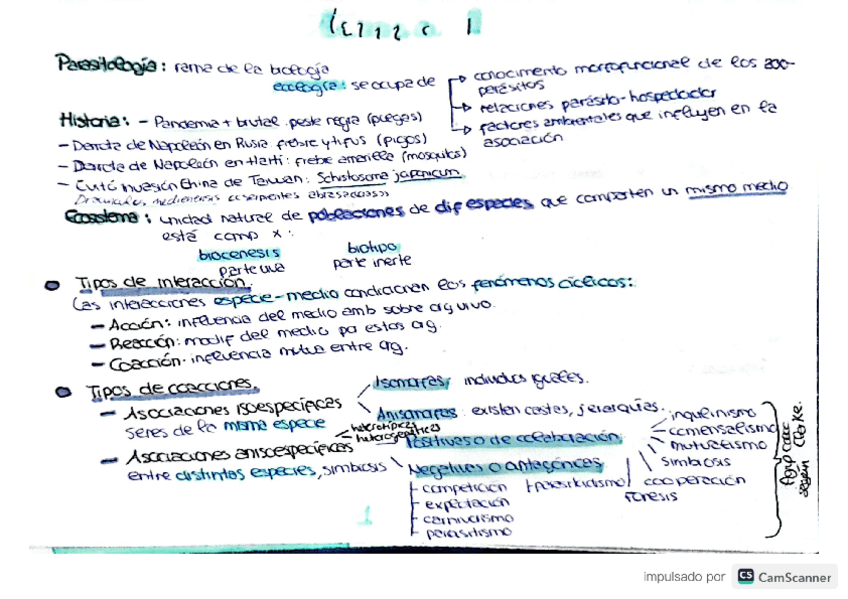 Tema 1
Parasitología: rama de la biología
ecología: se ocupa de
→ conocimento morfofuncional de los zoo-
parásitos
→ relaciones parásito-hospedador
→ factores ambientales que influyen en la
asociación
Historia: - Pandemia + brutal peste negra (pulgas)
- Derrota de Napoleón en Rusia fiebre y tifus (piojos)
- Derrota de Napoleón en Haití: fiebre amarilla (mosquitos)
- Evitó invasión China de Taiwan: Schistosoma japonicum
medinensis serpientes abrasadoras>>
Ecosistema: unidad natural de poblaciones de dif especies que comparten un mismo medio
está comp x:
biocenesis
parte viva
biotipo
parte inerte
Tipos de interacción.
Las interacciones especie-medio condicionan los fenómenos cíclicos:
- Acción: influencia del medio amb sobre og vivo.
- Reacción: modif del medio por estos og.
- Coacción: influencia mutua entre og.
Tipos de coacciones.
- Asociaciones isoespecíficas
Seres de la misma especie
Isomorfas, individuos iguales.
Anisomorfas: existen castas, jerarquías.
- Asociaciones anisoespecíficas
entre distintas especies, simbiosis
heterotípicas
Positivas o de colaboración
inquilinismo
comensalismo
mutualismo
simbiosis
cooperación
foresis
Negativas o antagónicas
competición
expoliación
carnivorismo
parasitismo
parasitoidismo
según
impulsado por CS CamScanner